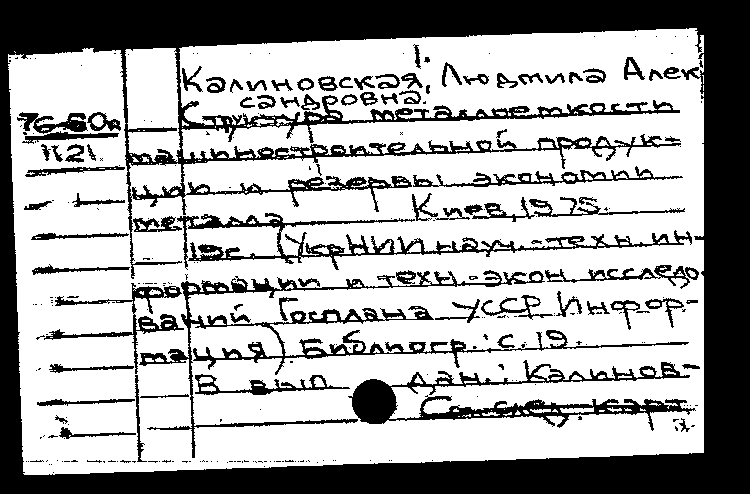 1.
Калиновская, Людмила Алек
сандровна.
76-80
1121
Структура металлоемкости
машиностроительной продук-
ции и резервы экономии
металла Киев, 1975.
19с. (УкрНИИ науч.-техн. ин-
формации и техн.-экон. исследо
ваний Госплана УССР Инфор-
мация) Библиогр.: с. 19.
В вып. дан.: Калинов-
См. след. карт.